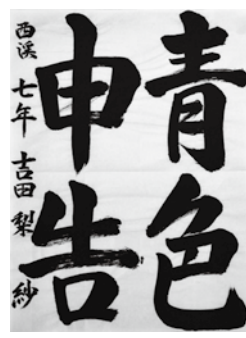 青色
申告
西渓 七年 吉田 梨紗